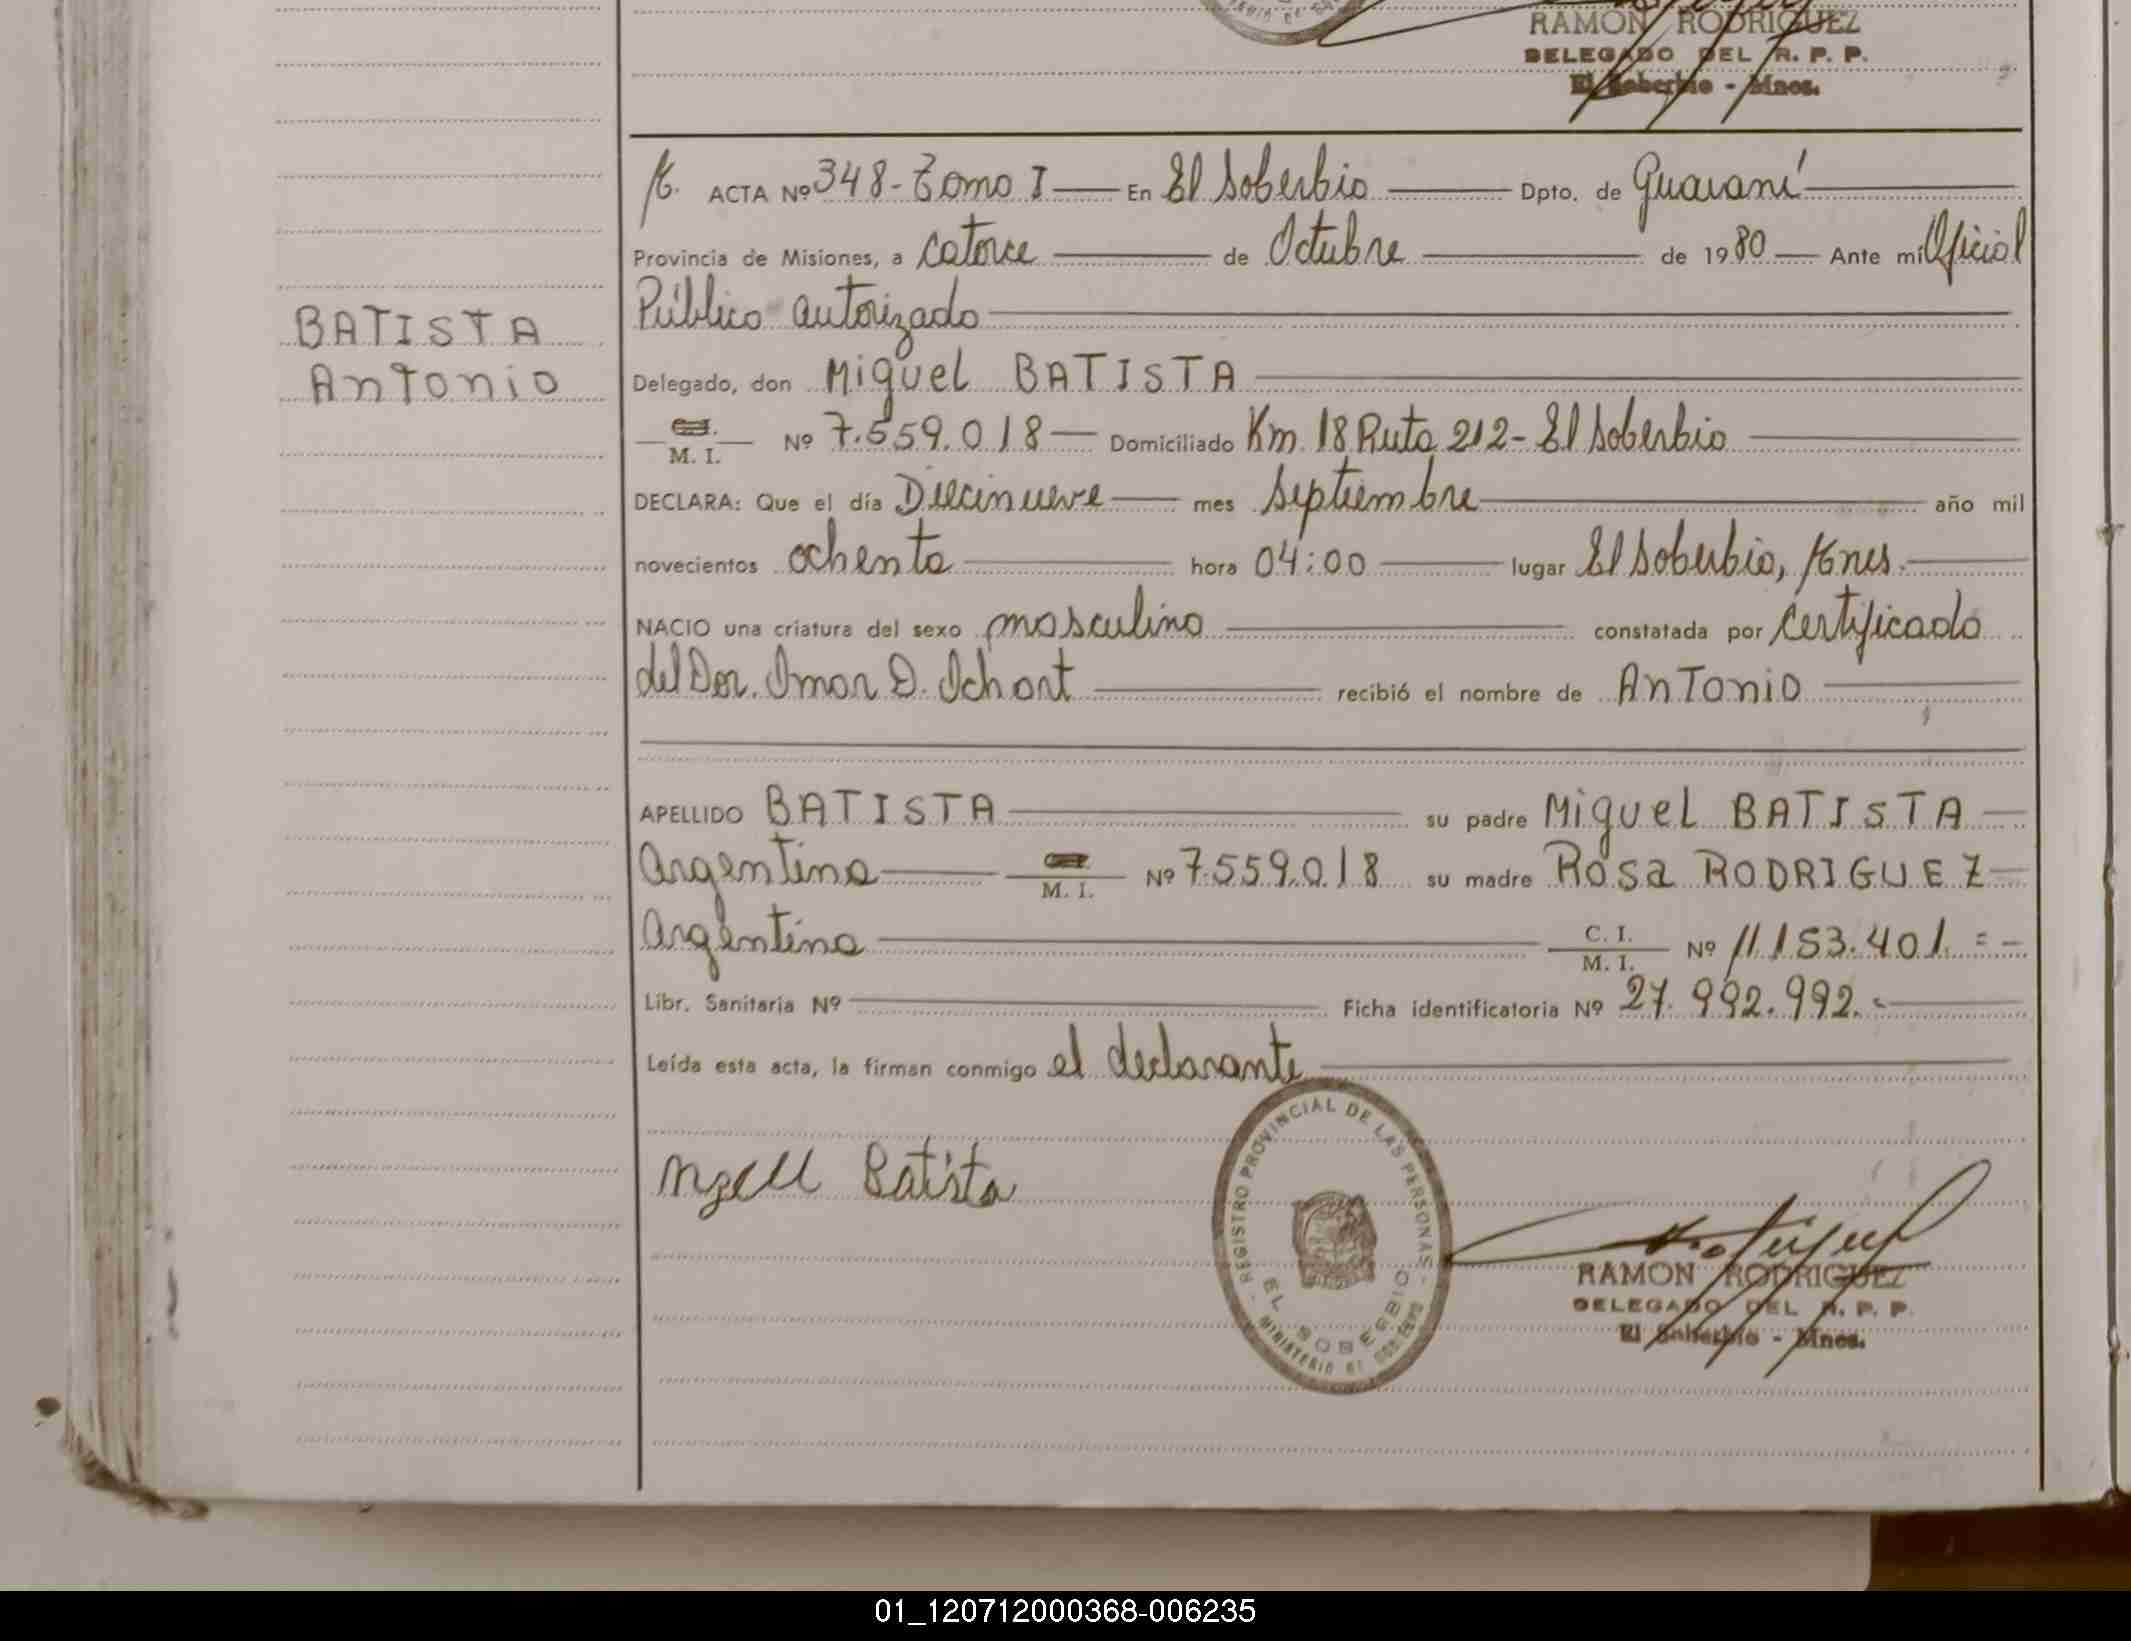 RAMON RODRIGUEZ
DELEGADO DEL R. P. P.
El Soberbio - Mnes.
ACTA Nº 348 - Tomo I En El Soberbio Dpto. de Guaraní
Provincia de Misiones, a Catorce de Octubre de 1980 Ante mí Oficial
Público autorizado
BATISTA
Antonio
Delegado, don Miguel BATISTA
M. I. Nº 7.559.018 Domiciliado Km. 18 Ruta 212 - El Soberbio
DECLARA: Que el día Diecinueve mes Septiembre año mil
novecientos ochenta hora 04:00 lugar El Soberbio, Mnes.
NACIO una criatura del sexo masculino constatada por Certificado
del Dor. Omar D. Ochart recibió el nombre de Antonio
APELLIDO BATISTA su padre Miguel BATISTA
Argentino M. I. Nº 7.559.018 su madre Rosa RODRIGUEZ
Argentina C. I. M. I. Nº 11.153.401.=
Libr. Sanitaria Nº Ficha identificatoria Nº 27.992.992.-
Leída esta acta, la firman conmigo el declarante
Batista
REGISTRO PROVINCIAL DE LAS PERSONAS
EL SOBERBIO
MINISTERIO DE GOBIERNO
RAMON RODRIGUEZ
DELEGADO DEL R. P. P.
El Soberbio - Mnes.
01_120712000368-006235